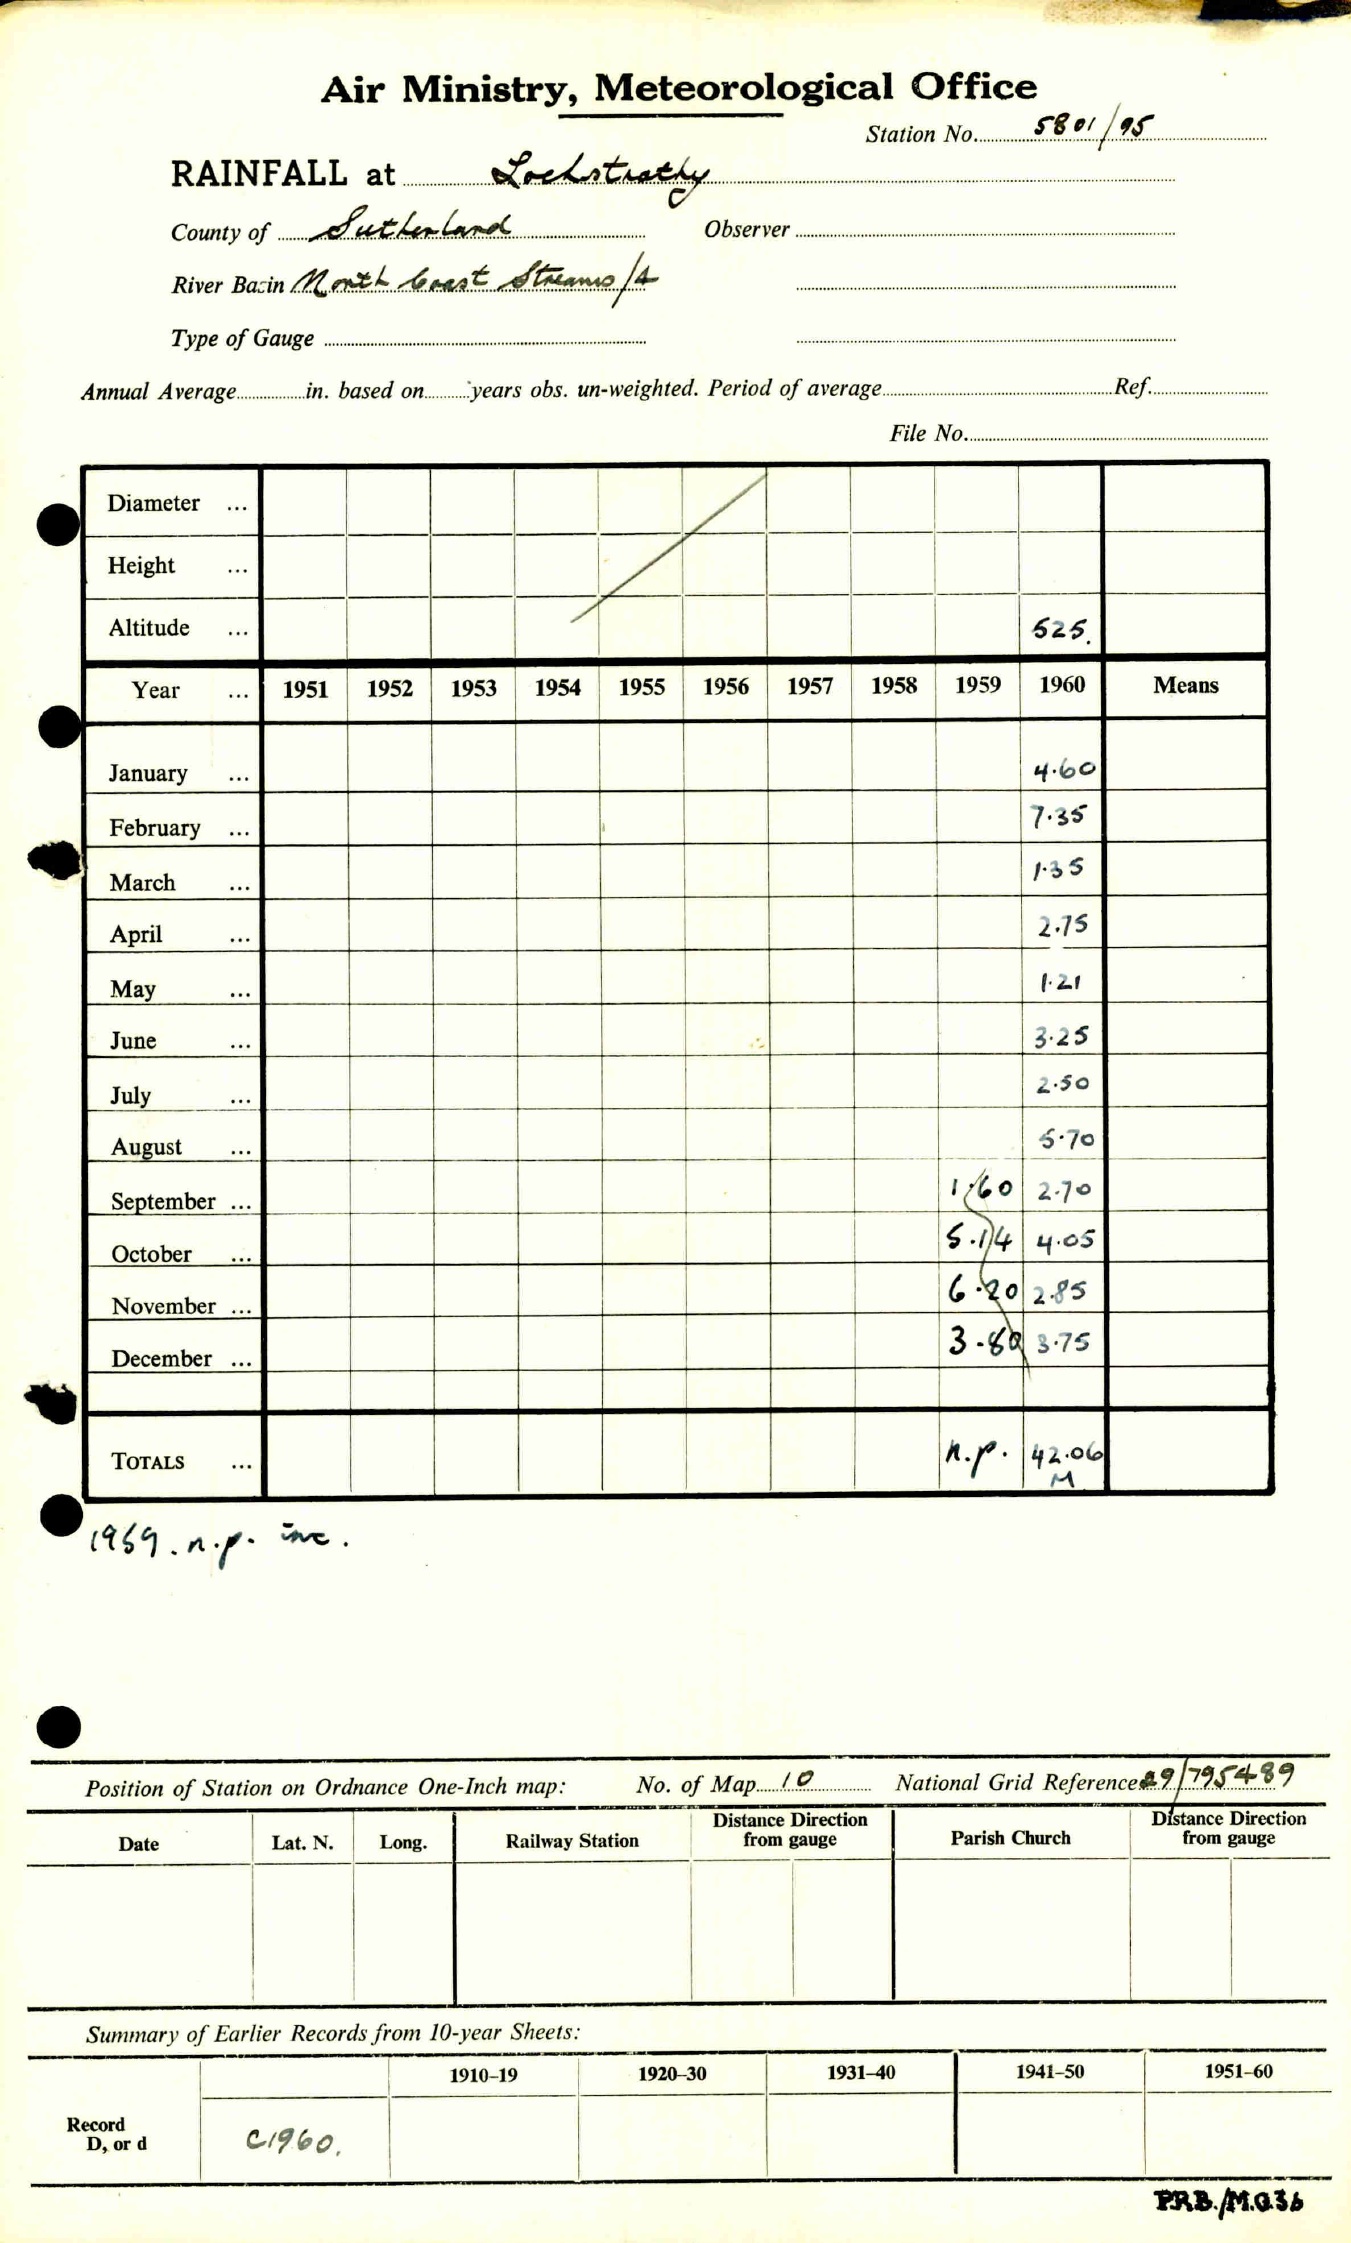 Air Ministry, Meteorological Office
Station No. 5801/95
RAINFALL at Lochstrathy
County of Sutherland Observer
River Basin North Coast Streams/4
Type of Gauge
Annual Average in. based on years obs. un-weighted. Period of average Ref.
File No.
Diameter ...
Height ...
Altitude ... 525.
Year ... 1951 1952 1953 1954 1955 1956 1957 1958 1959 1960 Means
January ... 4.60
February ... 7.35
March ... 1.35
April ... 2.75
May ... 1.21
June ... 3.25
July ... 2.50
August ... 5.70
September ... 1.60 2.70
October ... 5.14 4.05
November ... 6.20 2.85
December ... 3.80 3.75
TOTALS ... n.p. 42.06
M
1959. n.p. inc.
Position of Station on Ordnance One-Inch map: No. of Map 10 National Grid Reference 29/795489
Date Lat. N. Long. Railway Station Distance Direction from gauge Parish Church Distance Direction from gauge
Summary of Earlier Records from 10-year Sheets:
1910–19 1920–30 1931–40 1941–50 1951–60
Record
D, or d C1960.
P.R.B./M.O.36